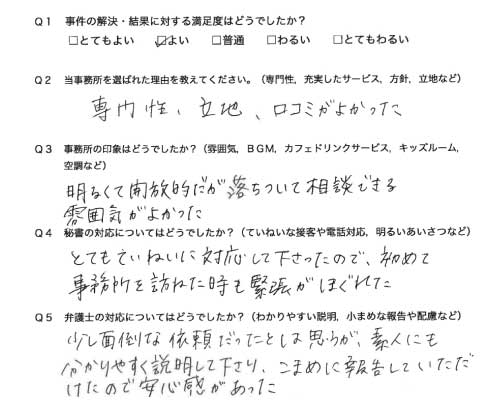 Q1 事件の解決・結果に対する満足度はどうでしたか?
□とてもよい ☑よい □普通 □わるい □とてもわるい
Q2 当事務所を選ばれた理由を教えてください。(専門性，充実したサービス，方針，立地など)
専門性、立地、口コミがよかった
Q3 事務所の印象はどうでしたか?(雰囲気，BGM，カフェドリンクサービス，キッズルーム，
空調など)
明るくて開放的だが落ちついて相談できる
雰囲気がよかった
Q4 秘書の対応についてはどうでしたか?(ていねいな接客や電話対応，明るいあいさつなど)
とてもていねいに対応して下さったので、初めて
事務所を訪ねた時も緊張がほぐれた
Q5 弁護士の対応についてはどうでしたか?(わかりやすい説明，小まめな報告や配慮など)
少し面倒な依頼だったとは思うが、素人にも
分かりやすく説明して下さり、こまめに報告していただ
けたので安心感があった